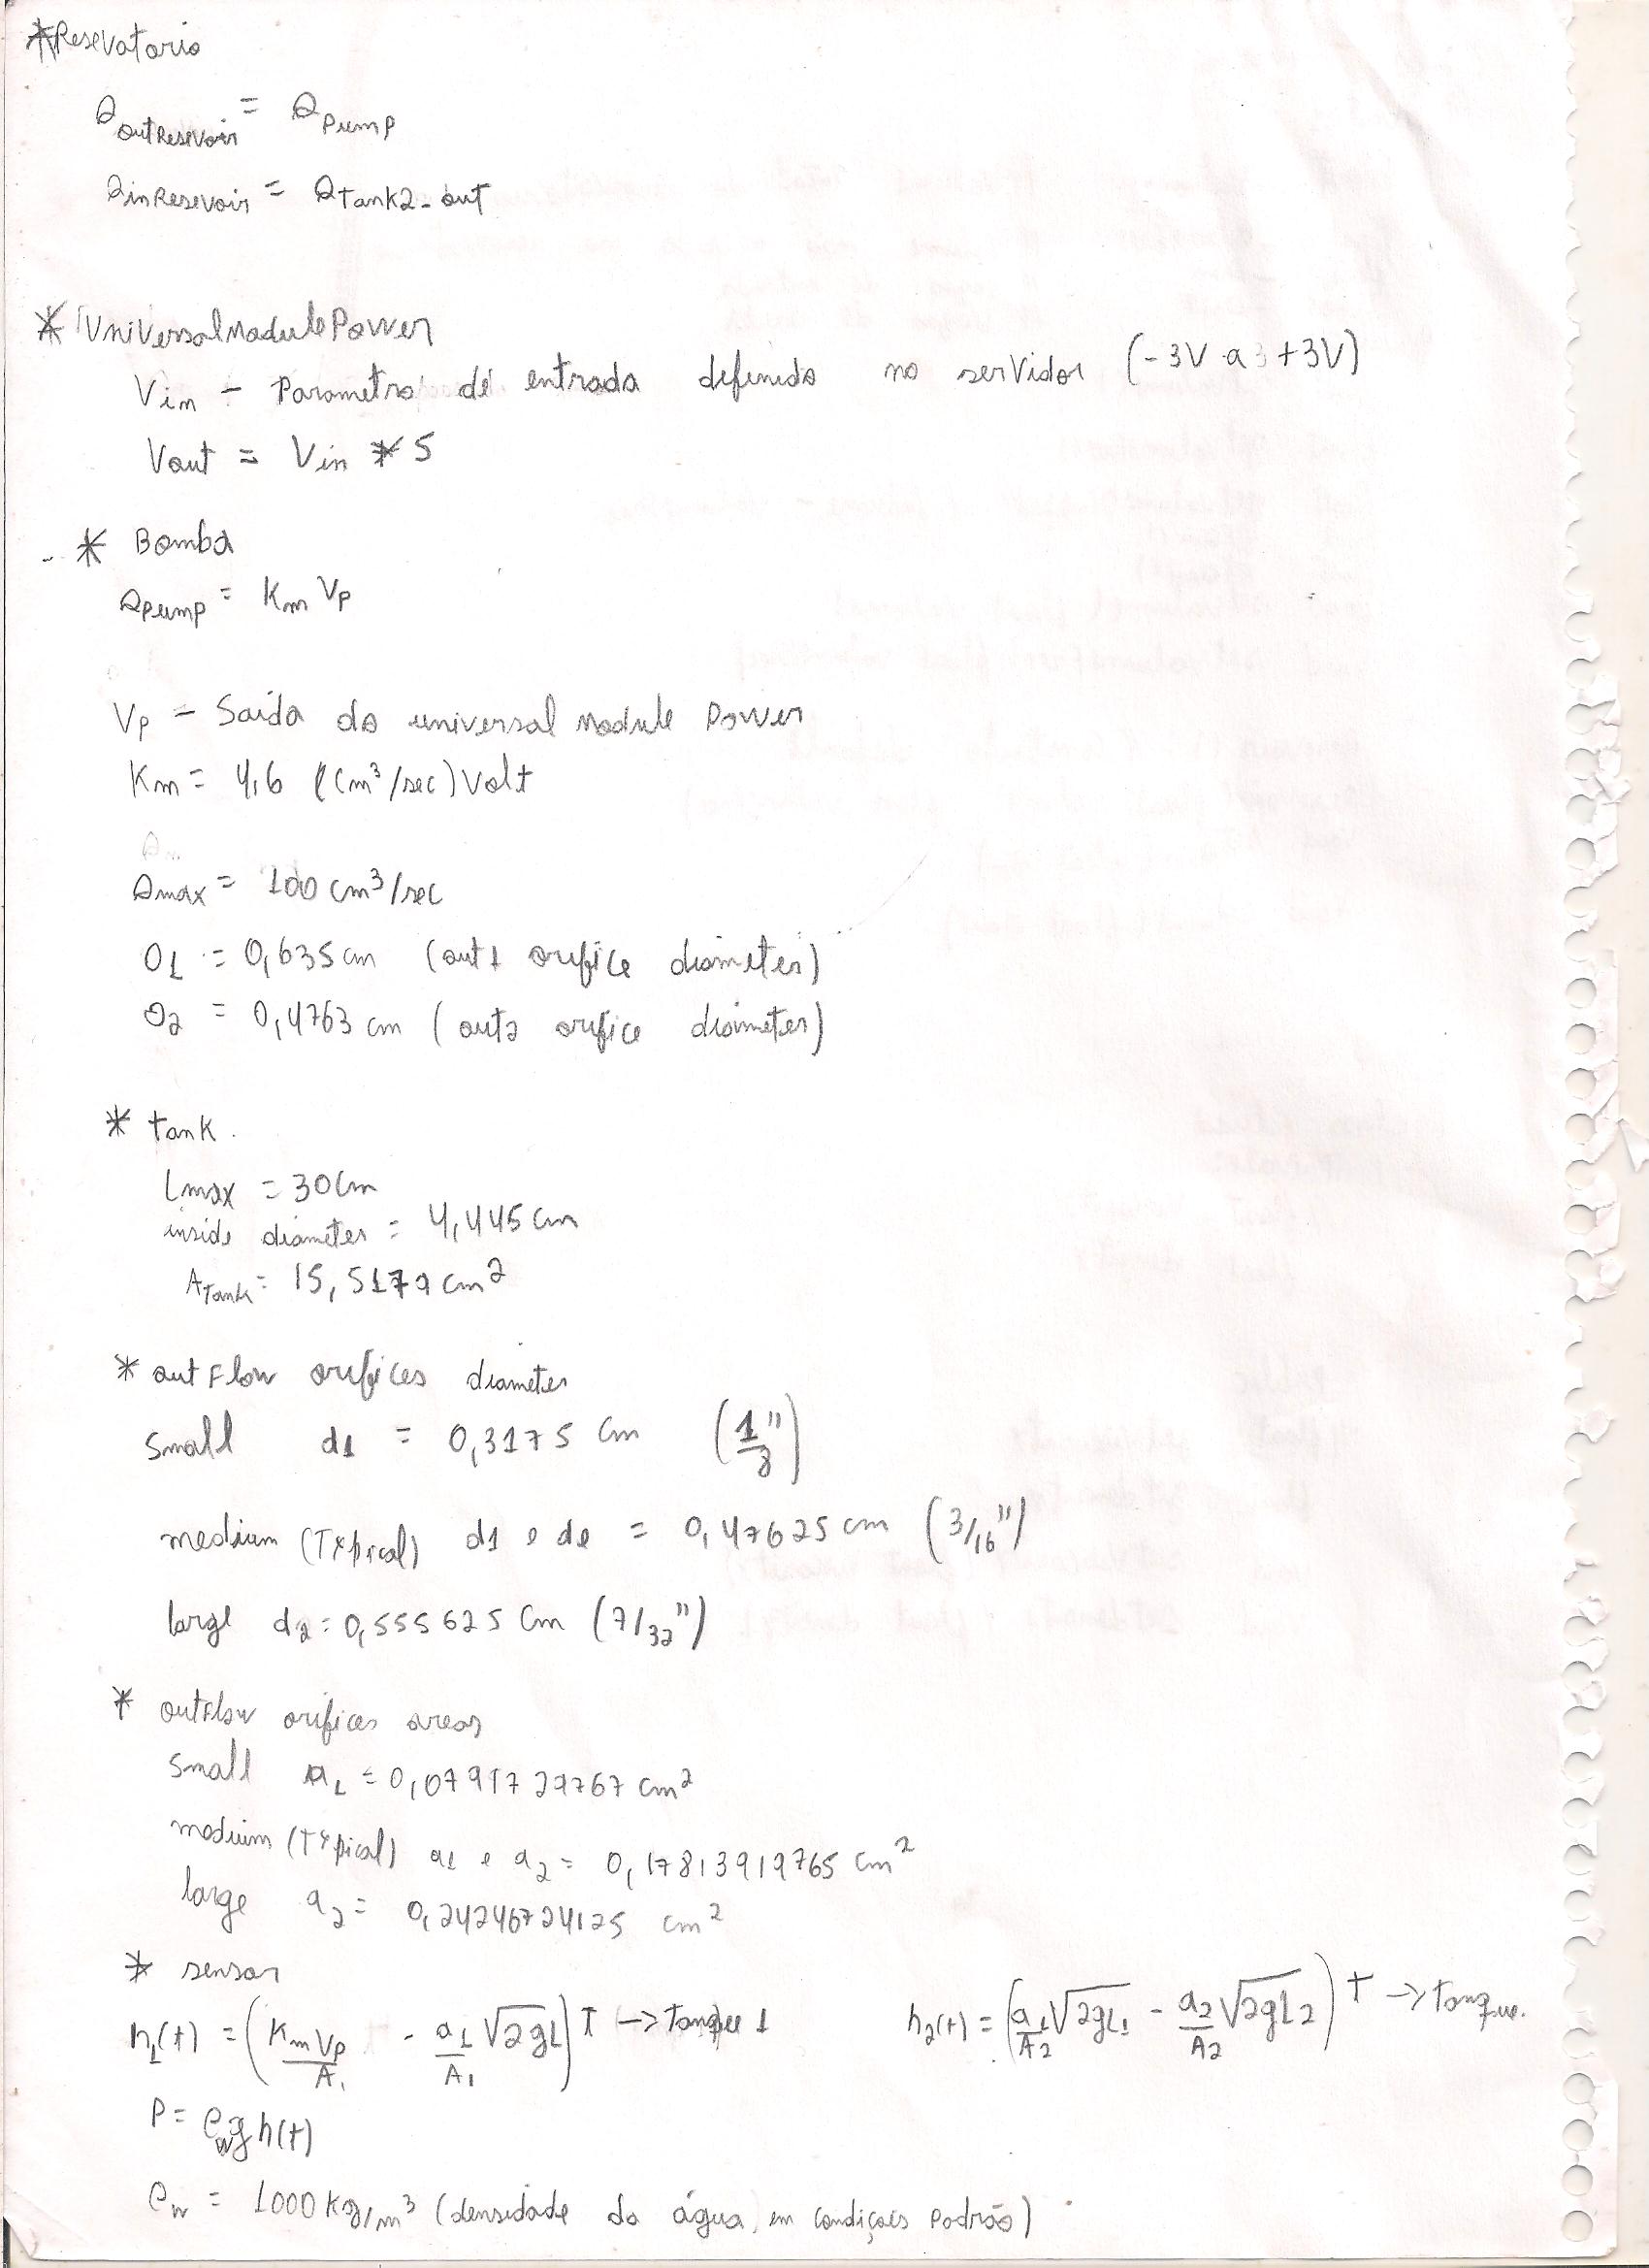 * Resevatorio
Q outResevoir = Q pump
Q inResevoir = Q Tank2-out
* UniversalModulePower
Vin - Parametro de entrada definido no servidor (-3V a +3V)
Vout = Vin * 5
* Bomba
Qpump = Km Vp
Vp - Saída do universal module Power
Km = 4,6 ((cm³/sec) Volt
Qmax = 100 cm³/sec
O1 = 0,635 cm (out1 orifice diameter)
O2 = 0,4763 cm (out2 orifice diameter)
* tank.
Lmax = 30 cm
inside diameter = 4,445 cm
ATank = 15,5179 cm²
* outFlow orifices diameter
small d1 = 0,3175 cm (1/8")
medium (Typical) d1 e d2 = 0,47625 cm (3/16")
large d2 = 0,555625 cm (7/32")
* outFlow orifices areas
small a1 = 0,0791729767 cm²
medium (Typical) a1 e a2 = 0,17813919765 cm²
large a2 = 0,24246724125 cm²
* sensor
h1(t) = (Km Vp/A1 - a1/A1 √2gL) T -> Tanque 1 h2(t) = (a1/A2 √2gL1 - a2/A2 √2gL2) T -> Tanque.
P = ρw g h(t)
ρw = 1000 Kg/m³ (densidade da água, em condiçoes Padrão)